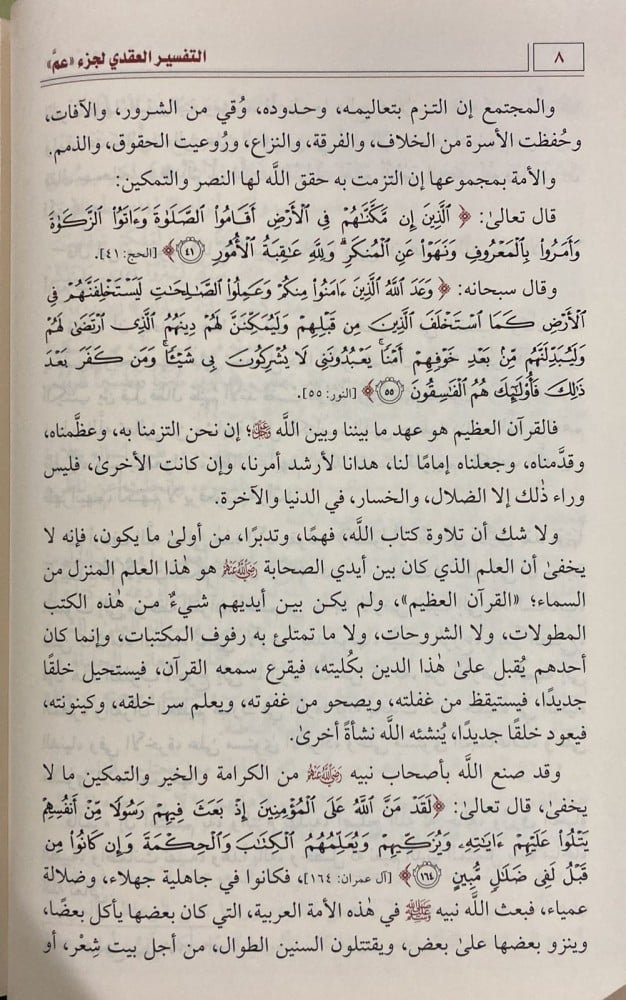 ٨
التفسير العقدي لجزء «عمَّ»
والمجتمع إن التزم بتعاليمه، وحدوده، وُقي من الشرور، والآفات،
وحُفظت الأسرة من الخلاف، والفرقة، والنزاع، ورُوعيت الحقوق، والذمم.
والأمة بمجموعها إن التزمت به حقق الله لها النصر والتمكين:
قال تعالىٰ: ﴿ٱلَّذِينَ إِن مَّكَّنَّٰهُمْ فِي ٱلْأَرْضِ أَقَامُوا۟ ٱلصَّلَوٰةَ وَءَاتَوُا۟ ٱلزَّكَوٰةَ
وَأَمَرُوا۟ بِٱلْمَعْرُوفِ وَنَهَوْا۟ عَنِ ٱلْمُنكَرِ ۗ وَلِلَّهِ عَٰقِبَةُ ٱلْأُمُورِ ٤١﴾ [الحج: ٤١].
وقال سبحانه: ﴿وَعَدَ ٱللَّهُ ٱلَّذِينَ ءَامَنُوا۟ مِنكُمْ وَعَمِلُوا۟ ٱلصَّٰلِحَٰتِ لَيَسْتَخْلِفَنَّهُمْ فِي
ٱلْأَرْضِ كَمَا ٱسْتَخْلَفَ ٱلَّذِينَ مِن قَبْلِهِمْ وَلَيُمَكِّنَنَّ لَهُمْ دِينَهُمُ ٱلَّذِي ٱرْتَضَىٰ لَهُمْ
وَلَيُبَدِّلَنَّهُم مِّنۢ بَعْدِ خَوْفِهِمْ أَمْنًا ۚ يَعْبُدُونَنِي لَا يُشْرِكُونَ بِي شَيْـًٔا ۚ وَمَن كَفَرَ بَعْدَ
ذَٰلِكَ فَأُو۟لَٰٓئِكَ هُمُ ٱلْفَٰسِقُونَ ٥٥﴾ [النور: ٥٥].
فالقرآن العظيم هو عهد ما بيننا وبين الله ﷻ؛ إن نحن التزمنا به، وعظَّمناه،
وقدَّمناه، وجعلناه إمامًا لنا، هدانا لأرشد أمرنا، وإن كانت الأخرىٰ، فليس
وراء ذٰلك إلا الضلال، والخسار، في الدنيا والآخرة.
ولا شك أن تلاوة كتاب الله، فهمًا، وتدبرًا، من أولىٰ ما يكون، فإنه لا
يخفىٰ أن العلم الذي كان بين أيدي الصحابة رضي الله عنهم هو هٰذا العلم المنزل من
السماء؛ «القرآن العظيم»، ولم يكن بين أيديهم شيءٌ من هٰذه الكتب
المطولات، ولا الشروحات، ولا ما تمتلئ به رفوف المكتبات، وإنما كان
أحدهم يُقبل علىٰ هٰذا الدين بكُليته، فيقرع سمعه القرآن، فيستحيل خلقًا
جديدًا، فيستيقظ من غفلته، ويصحو من غفوته، ويعلم سر خلقه، وكينونته،
فيعود خلقًا جديدًا، يُنشئه الله نشأةً أخرىٰ.
وقد صنع الله بأصحاب نبيه رضي الله عنهم من الكرامة والخير والتمكين ما لا
يخفىٰ، قال تعالىٰ: ﴿لَقَدْ مَنَّ ٱللَّهُ عَلَى ٱلْمُؤْمِنِينَ إِذْ بَعَثَ فِيهِمْ رَسُولًا مِّنْ أَنفُسِهِمْ
يَتْلُوا۟ عَلَيْهِمْ ءَايَٰتِهِۦ وَيُزَكِّيهِمْ وَيُعَلِّمُهُمُ ٱلْكِتَٰبَ وَٱلْحِكْمَةَ وَإِن كَانُوا۟ مِن
قَبْلُ لَفِي ضَلَٰلٍ مُّبِينٍ ١٦٤﴾ [آل عمران: ١٦٤]، فكانوا في جاهلية جهلاء، وضلالة
عمياء، فبعث الله نبيه ﷺ في هٰذه الأمة العربية، التي كان بعضها يأكل بعضًا،
وينزو بعضها علىٰ بعض، ويقتتلون السنين الطوال، من أجل بيت شِعْر، أو